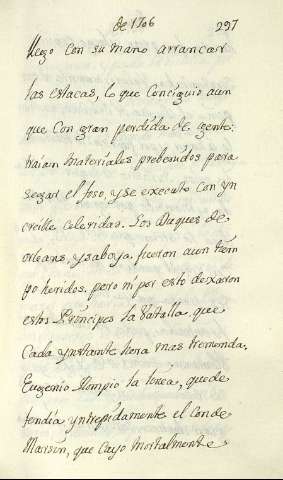 de 1706 297
llego con su mano arrancar
las estacas, lo que Conciguio aun
que Con gran perdida de gente:
traian materiales prebenidos para
segar el foso, y se executo con yn
creible celeridas. Los Duques de
Orleans, y saboya fueron aun tiem
po heridos. pero ni por esto dexaron
estos Principes la Vatalla, que
Cada ynstante hera mas tremenda.
Eugenio Rompio la linea, quede
tendia yntrepidamente el Conde
Marsin, que Cayo mortalmente